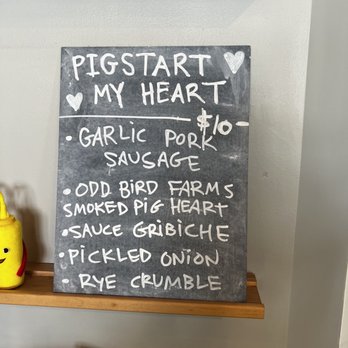 PIGSTART
MY HEART
$10-
• GARLIC PORK
SAUSAGE
• ODD BIRD FARMS
SMOKED PIG HEART
• SAUCE GRIBICHE
• PICKLED ONION
• RYE CRUMBLE